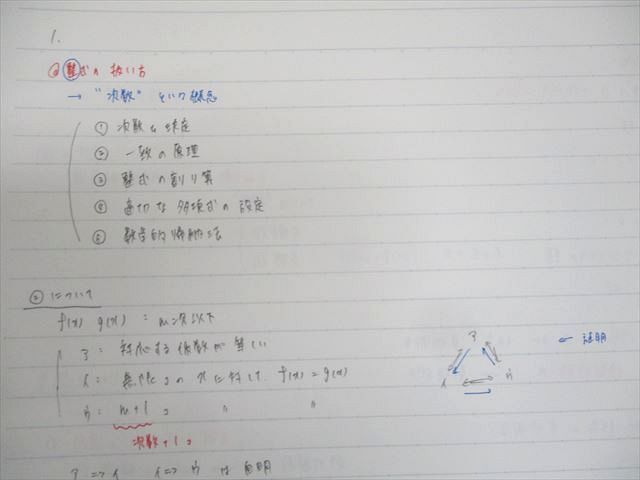 1.
◎ 整式の扱い方
→ "次数" という概念
① 次数を決定
② 一致の原理
③ 整式の割り算
④ 適切な多項式の設定
⑤ 数学的帰納法
② について
f(x) g(x) : n次以下
ア: 対応する係数が等しい
イ: 無限個の xに対して、f(x) = g(x)
ウ: n+1コ 〃 〃
次数+1コ
ア
← 証明
イ ウ
ア ⇒ イ イ ⇒ ウ は 自明